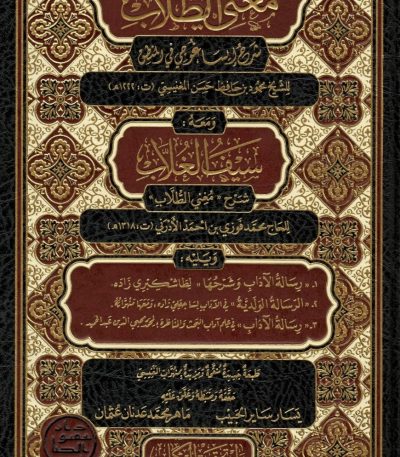 مغني الطلاب
شرح متن إيساغوجي في المنطق
للشيخ محمود بن حافظ حسن المغنيسي (ت: ١٢٢٢هـ)
وَمَعَهُ:
سيف الغلاب
شرح «مُغني الطلاب»
للحاج محمد فوزي بن أحمد الأدرني (ت: ١٣١٨هـ)
وَيَليْهِ:
١. «رِسالةُ الآدابِ وَشَرْحُهَا» لِطَاشكُبْري زَادَه.
٢. الرسالة الوَلَديَّة في الآداب لِسَاجقلي زاده، ومعها منهواتُهُ.
٣. «رسالة الآداب» في علم آداب البحث والمناظرة لمحمد محيي الدين عبد الحميد.
طبعة جديدة منقحة ومزيدة
حققه وضبطه وعلق عليه
يسار ساير الحبيب
ماهر محمد عدنان عثمان